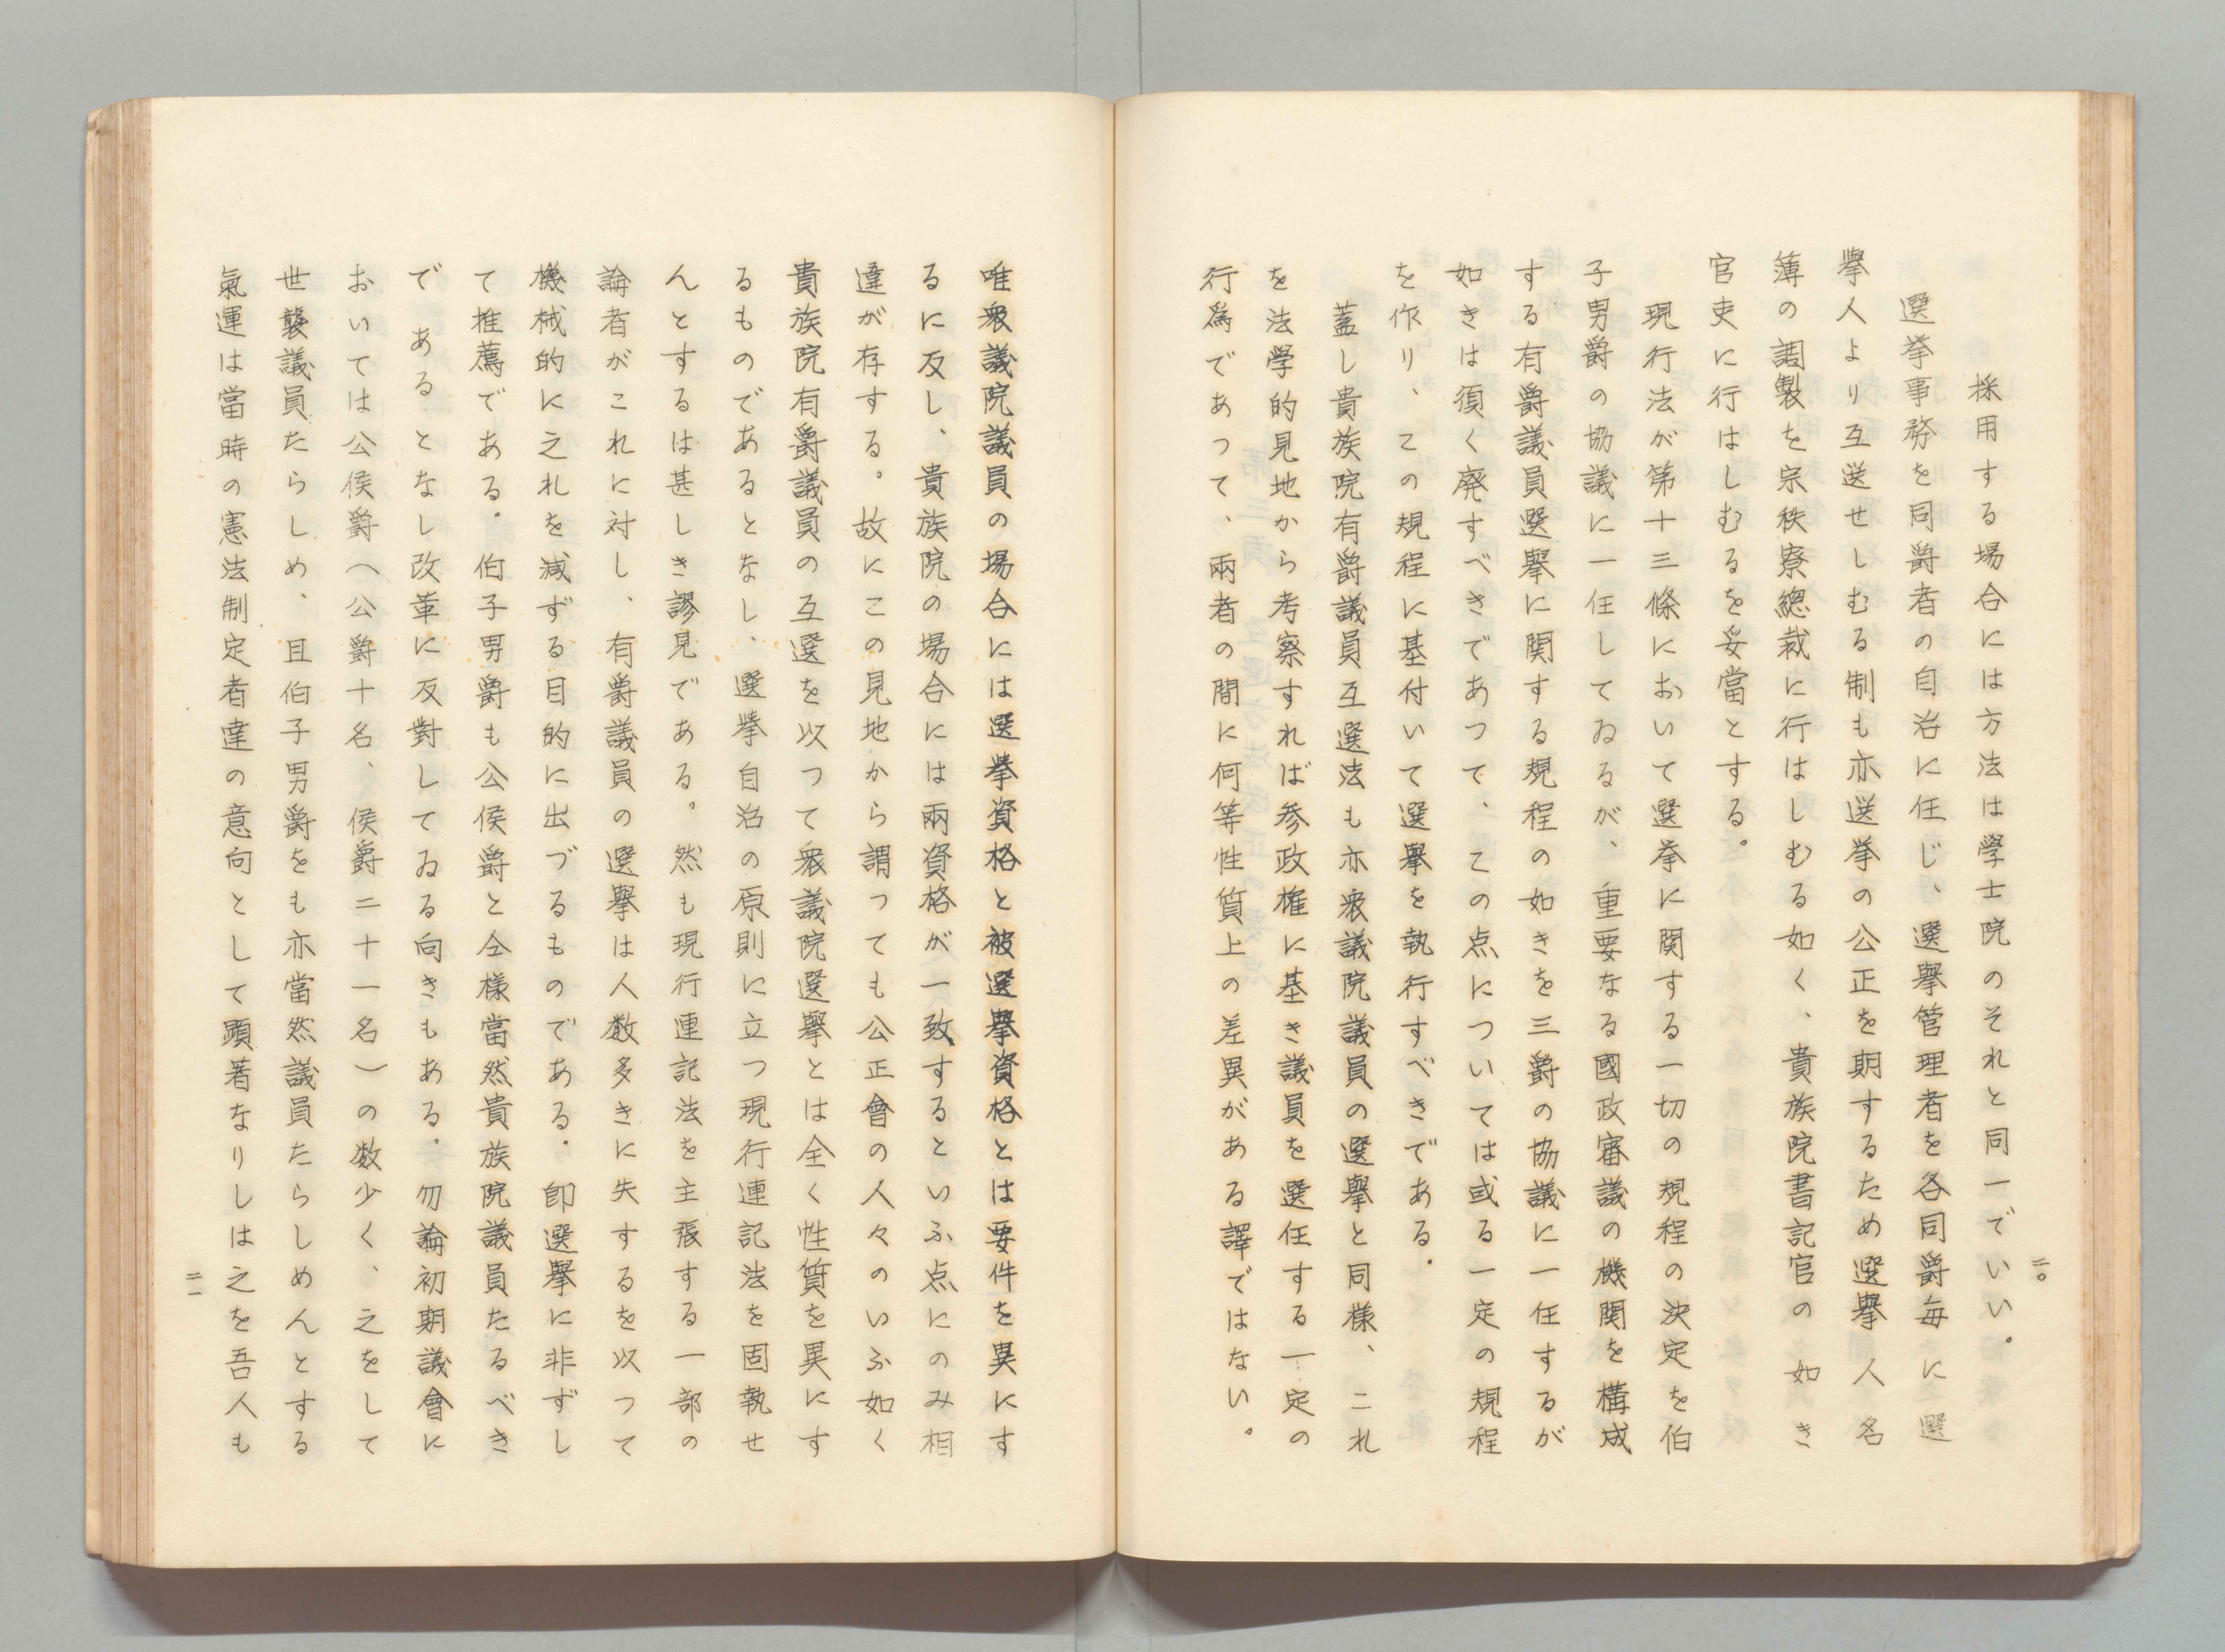 採用する場合には方法は學士院のそれと同一でいい。
選挙事務を同爵者の自治に任じ、選擧管理者を各同爵毎に選
擧人より互選せしむる制も亦選挙の公正を期するため選擧人名
簿の調製を宗秩寮總裁に行はしむる如く、貴族院書記官の如き
官吏に行はしむるを妥當とする。
現行法が第十三條において選挙に関する一切の規程の決定を伯
子男爵の協議に一任してゐるが、重要なる國政審議の機関を構成
する有爵議員選擧に関する規程の如きを三爵の協議に一任するが
如きは須く廃すべきであつて、この点については或る一定の規程
を作り、この規程に基付いて選擧を執行すべきである。
蓋し貴族院有爵議員互選法も亦衆議院議員の選擧と同様、これ
を法学的見地から考察すれば参政権に基き議員を選任する一定の
行爲であつて、兩者の間に何等性質上の差異がある譯ではない。
二〇
唯衆議院議員の場合には選挙資格と被選擧資格とは要件を異にす
るに反し、貴族院の場合には兩資格が一致するといふ点にのみ相
違が存する。故にこの見地から謂つても公正會の人々のいふ如く
貴族院有爵議員の互選を以つて衆議院選擧とは全く性質を異にす
るものであるとなし、選挙自治の原則に立つ現行連記法を固執せ
んとするは甚しき謬見である。然も現行連記法を主張する一部の
論者がこれに対し、有爵議員の選擧は人数多きに失するを以つて
機械的に之れを減ずる目的に出づるものである。卽選擧に非ずし
て推薦である。伯子男爵も公侯爵と仝様當然貴族院議員たるべき
であるとなし改革に反對してゐる向きもある。勿論初期議會に
おいては公侯爵（公爵十名、侯爵二十一名）の数少く、之をして
世襲議員たらしめ、且伯子男爵をも亦當然議員たらしめんとする
氣運は當時の憲法制定者達の意向として顕著なりしは之を吾人も
二一